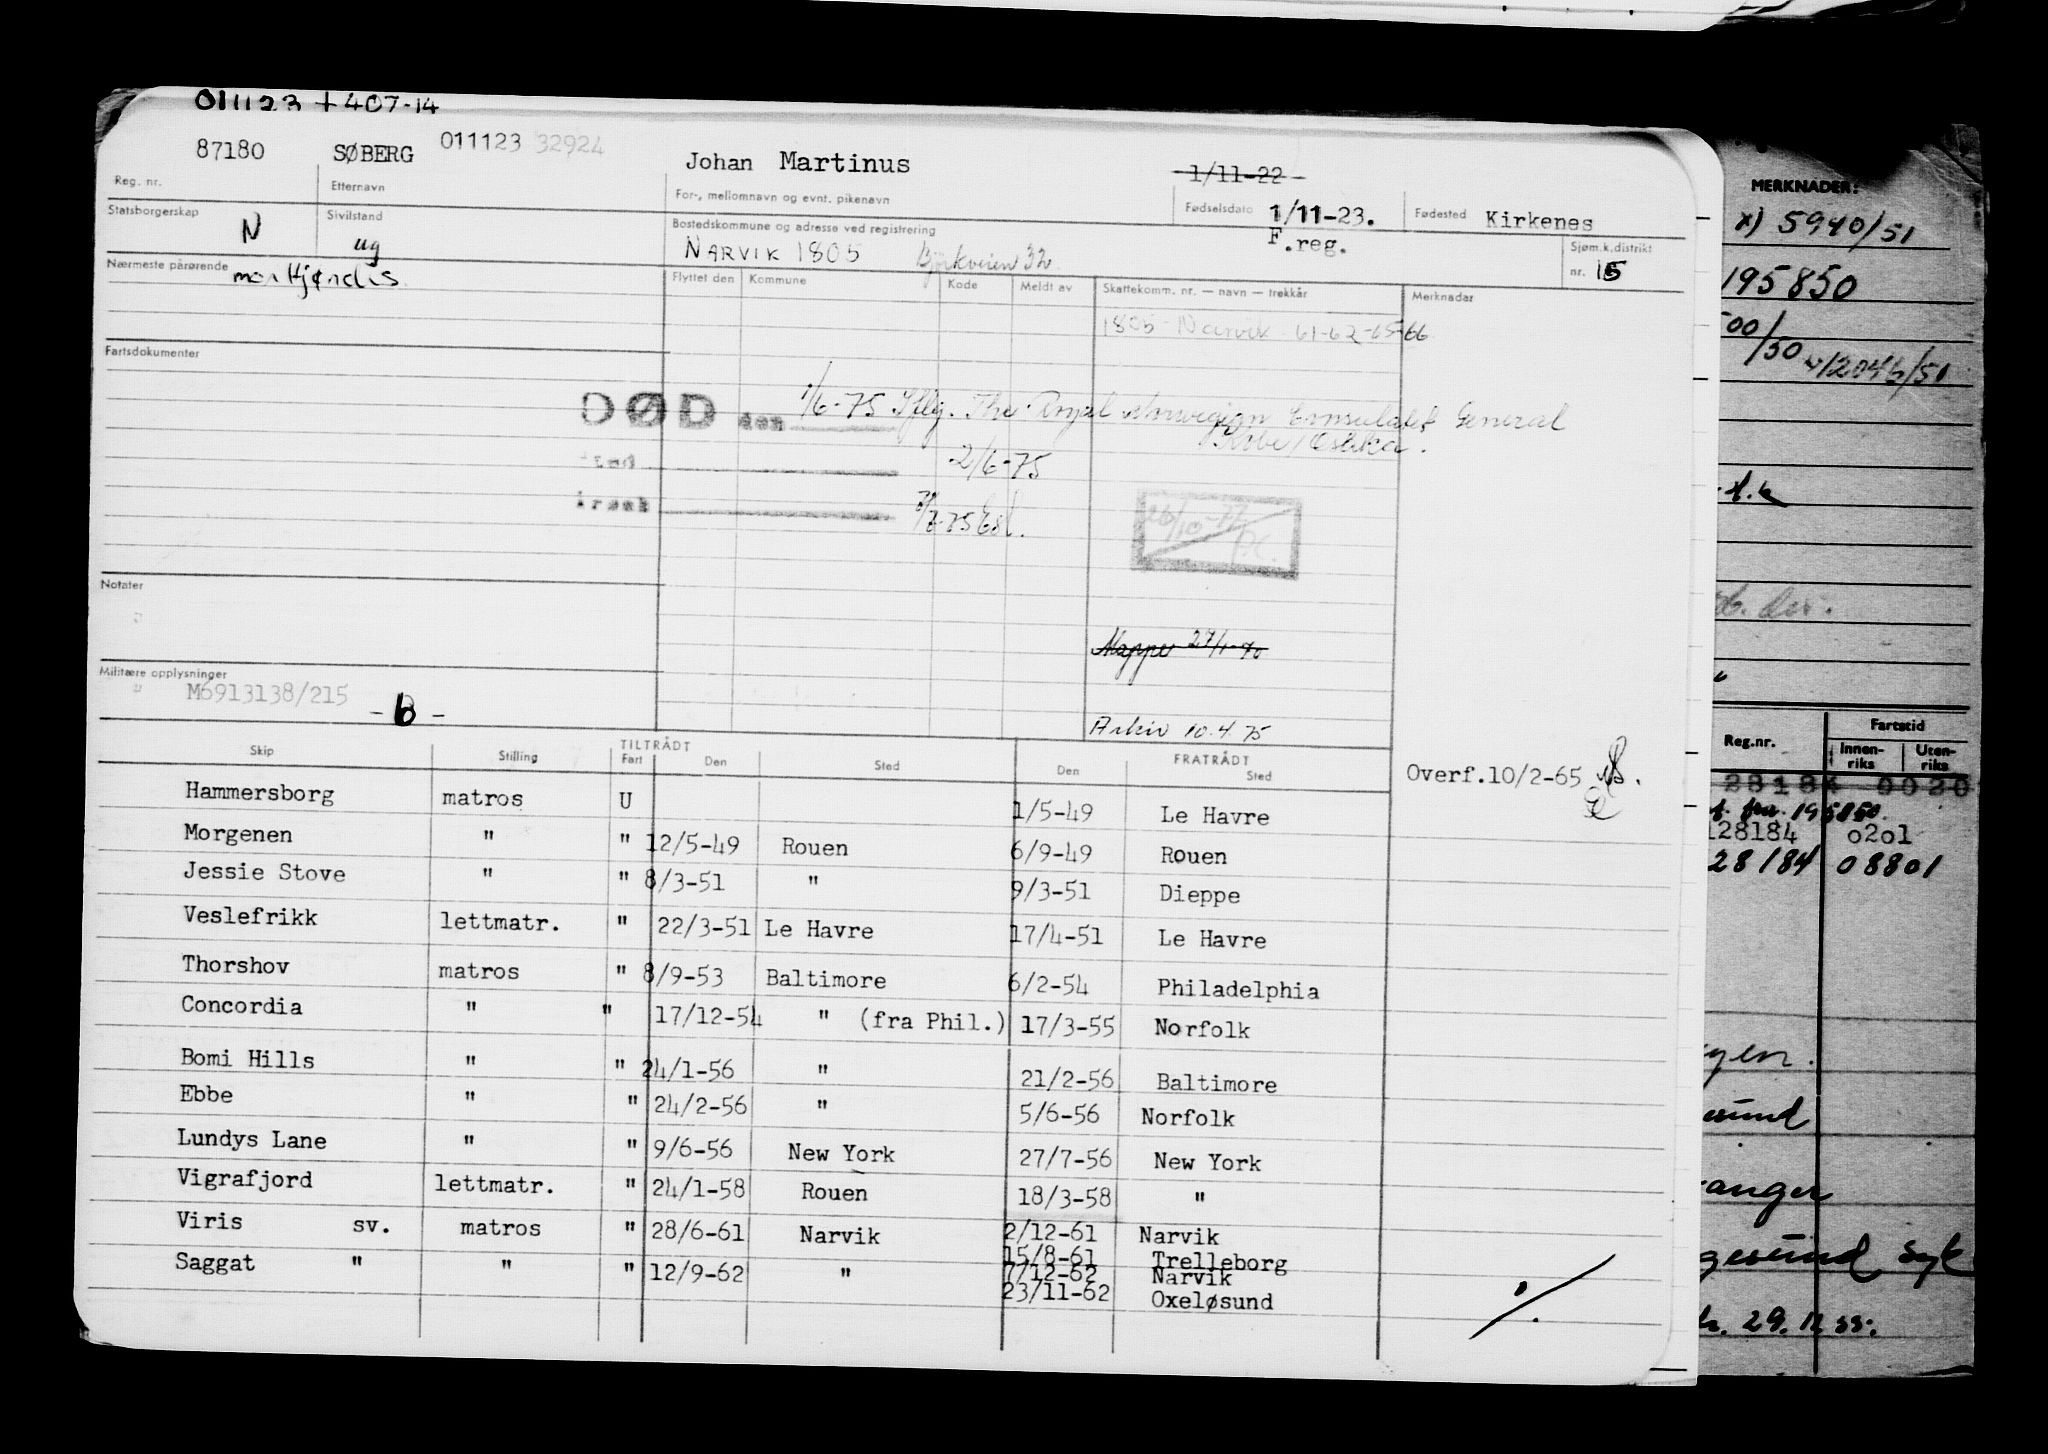 011123 + 407-14
87180 SØBERG 011123 32924 Johan Martinus 1/11-22
Reg. nr. Etternavn For-, mellomnavn og evnt. pikenavn Fødselsdato 1/11-23. Fødested Kirkenes
F.reg.
Statsborgerskap N Sivilstand ug Bostedskommune og adresse ved registrering Sjøm.k.distrikt
NARVIK 1805 32 nr. 15
Nærmeste pårørende mor Hjørdis Flyttet den Kommune Kode Meldt av Skattekomm. nr. — navn — trekkår Merknader
1805 Narvik 61-62-65-66
Fartsdokumenter
DØD den 1/6-75 Iflg. The Royal Norwegian Consulate General
Kobe/Osaka.
sted 2/6-75
årsak
26/10-77
Notater
Mappe
Militære opplysninger
M6913138/215
- B -
Arkiv 10.4.75
Skip Stilling TILTRÅDT Fart Den Sted FRATRÅDT Den Sted
Overf.10/2-65
Hammersborg matros U 1/5-49 Le Havre
Morgenen " " 12/5-49 Rouen 6/9-49 Rouen
Jessie Stove " " 8/3-51 " 9/3-51 Dieppe
Veslefrikk lettmatr. " 22/3-51 Le Havre 17/4-51 Le Havre
Thorshov matros " 8/9-53 Baltimore 6/2-54 Philadelphia
Concordia " " 17/12-54 " (fra Phil.) 17/3-55 Norfolk
Bomi Hills " " 24/1-56 " 21/2-56 Baltimore
Ebbe " " 24/2-56 " 5/6-56 Norfolk
Lundys Lane " " 9/6-56 New York 27/7-56 New York
Vigrafjord lettmatr. " 24/1-58 Rouen 18/3-58 "
Viris sv. matros " 28/6-61 Narvik 2/12-61 Narvik
15/8-61 Trelleborg
Saggat " " " 12/9-62 " 7/12-62 Narvik
23/11-62 Oxeløsund
MERKNADER:
x) 5940/51
195850
/50
12046/51
Reg.nr. Fartstid
Innen-riks Uten-riks
28184 0020
195850
128184 0201
28184 08801
29.12.55.